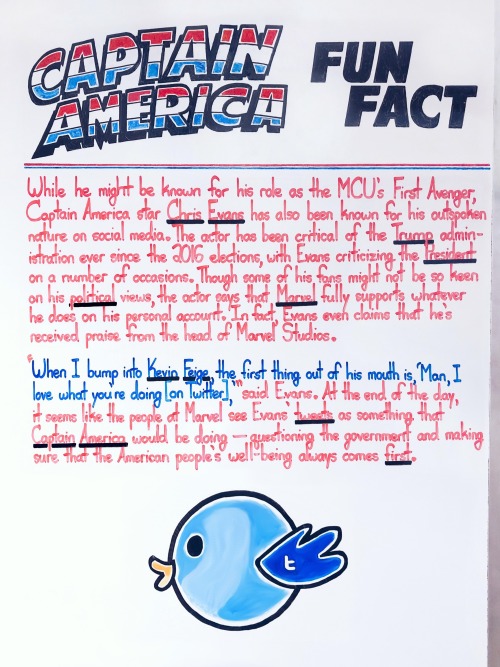 CAPTAIN
AMERICA
FUN
FACT
While he might be known for his role as the MCU's First Avenger,
Captain America star Chris Evans has also been known for his outspoken
nature on social media. The actor has been critical of the Trump admin-
istration ever since the 2016 elections, with Evans criticizing the President
on a number of occasions. Though some of his fans might not be so keen
on his political views, the actor says that Marvel fully supports whatever
he does on his personal account. In fact, Evans even claims that he's
received praise from the head of Marvel Studios.
"When I bump into Kevin Feige, the first thing out of his mouth is, 'Man, I
love what you're doing [on Twitter],'" said Evans. At the end of the day,
it seems like the people at Marvel see Evans' tweets as something that
Captain America would be doing — questioning the government and making
sure that the American people's well-being always comes first.
t